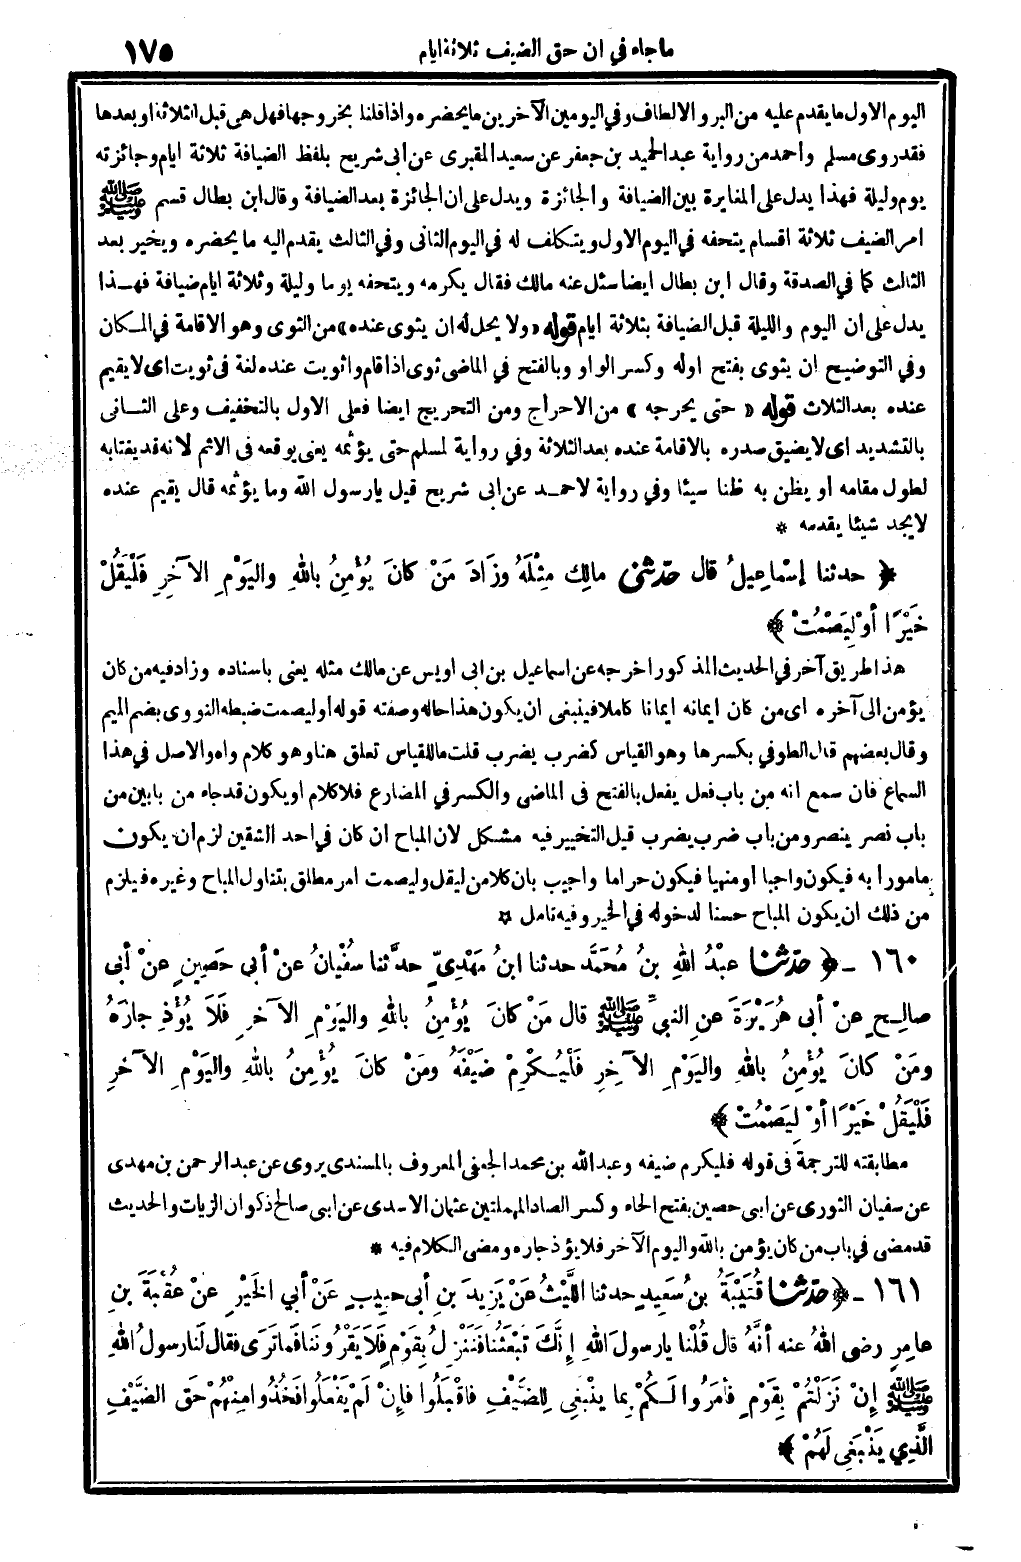 ماجاء في ان حق الضيف ثلاثة ايام ١٧٥
اليوم الاول ما يقدم عليه من البر والالطاف وفي اليومين الآخرين ما يحضره واذا قلنا بخروجها فهل هى قبل الثلاثة او بعدها
فقد روى مسلم واحمد من رواية عبد الحميد بن جعفر عن سعيد المقبرى عن ابى شريح بلفظ الضيافة ثلاثة ايام وجائزته
يوم وليلة فهذا يدل على المغايرة بين الضيافة والجائزة ويدل على ان الجائزة بعد الضيافة وقال ابن بطال قسم ﷺ
امر الضيف ثلاثة اقسام يتحفه في اليوم الاول ويتكلف له في اليوم الثانى وفي الثالث يقدم اليه ما يحضره ويخير بعد
الثالث كما في الصدقة وقال ابن بطال ايضا سئل عنه مالك فقال يكرمه ويتحفه يوما وليلة وثلاثة ايام ضيافة فهذا
يدل على ان اليوم والليلة قبل الضيافة بثلاثة ايام قوله «ولا يحل له ان يثوى عنده» من الثوى وهو الاقامة في المكان
وفي التوضيح ان يثوى بفتح اوله وكسر الواو وبالفتح في الماضى ثوى اذا قام واثويت عنده لغة فى ثويت اى لا يقيم
عنده بعد الثلاث قوله « حتى يحرجه » من الاحراج ومن التحريج ايضا فعلى الاول بالتخفيف وعلى الثانى
بالتشديد اى لا يضيق صدره بالاقامة عنده بعد الثلاثة وفي رواية لمسلم حتى يؤثمه يعنى يوقعه فى الاثم لانه قد يغتابه
لطول مقامه او يظن به ظنا سيئا وفي رواية لاحمد عن ابى شريح قيل يا رسول الله وما يؤثمه قال يقيم عنده
لا يجد شيئا يقدمه *
﴿ حدثنا إِسْمَاعِيلُ قال حَدَّثَنِى مالِك مِثْلَهُ وزَادَ مَنْ كانَ يُؤْمِنُ باللهِ واليَوْمِ الآخَرِ فَلْيَقُلْ
خَيْرًا أوْ لِيَصْمُتْ ﴾
هذا طريق آخر في الحديث المذكور اخرجه عن اسماعيل بن ابى اويس عن مالك مثله يعنى باسناده وزاد فيه من كان
يؤمن الى آخره اى من كان ايمانه ايمانا كاملا فينبغى ان يكون هذا حاله وصفته قوله أو ليصمت ضبطه النووى بضم الميم
وقال بعضهم قال الطوفي بكسرها وهو القياس كضرب يضرب قلت ما للقياس تعلق هنا وهو كلام واه والاصل في هذا
السماع فان سمع انه من باب فعل يفعل بالفتح فى الماضى والكسر في المضارع فلا كلام او يكون قد جاء من بابين من
باب نصر ينصر ومن باب ضرب يضرب قيل التخيير فيه مشكل لان المباح ان كان في احد الشقين لزم ان يكون
مامورا به فيكون واجبا او منهيا فيكون حراما واجيب بان كلا من ليقل وليصمت امر مطلق يتناول المباح وغيره فيلزم
من ذلك ان يكون المباح حسنا لدخوله في الخير وفيه تامل *
١٦٠ - ﴿ حَدَّثَنا عبْدُ اللهِ بنُ مُحَمَّد حدثنا ابنُ مَهْدِيٍّ حدَّثنا سُفْيَانُ عنْ أبي حَصِينٍ عنْ أبى
صالِحٍ عنْ أبى هُرَيْرَةَ عنِ النبيِّ ﷺ قال مَنْ كانَ يُؤْمِنُ باللهِ واليَوْمِ الآخَرِ فَلاَ يُؤْذِ جارَهُ
ومَنْ كانَ يُؤْمِنُ باللهِ واليَوْمِ الآخِرِ فَلْيُكْرِمْ ضَيْفَهُ ومَنْ كانَ يُؤْمِنُ باللهِ واليَوْمِ الآخَرِ
فَلْيَقُلْ خَيْرًا أوْ لِيَصْمُتْ ﴾
مطابقته للترجمة فى قوله فليكرم ضيفه وعبد الله بن محمد الجعفى المعروف بالمسندى يروى عن عبد الرحمن بن مهدى
عن سفيان الثورى عن ابى حصين بفتح الحاء وكسر الصاد المهملتين عثمان الاسدى عن ابى صالح ذكوان الزيات والحديث
قد مضى في باب من كان يؤمن بالله واليوم الآخر فلا يؤذ جاره ومضى الكلام فيه *
١٦١ - ﴿ حَدَّثَنا قُتَيْبَةُ بنُ سَعِيدٍ حدثنا اللَّيْثُ عَنْ يَزِيدَ بنِ أبى حبِيبٍ عَنْ أبي الخَيْرِ عنْ عُقْبَةَ بنِ
عامِرٍ رضى اللهُ عنه أنَّهُ قال قُلْنا يا رسولَ اللهِ إِنَّكَ تَبْعَثُنا فَنَنْزِلُ بِقَوْمٍ فَلاَ يَقْرُونَنا فَما تَرَى فقال لَنا رسولُ اللهِ
ﷺ إنْ نَزَلْتُمْ بِقَوْمٍ فأمَرُوا لَكُمْ بِما يَنْبَغِي لِلضَّيْفِ فاقْبَلُوا فإِنْ لَمْ يَفْعَلُوا فَخُذُوا مِنْهُمْ حَقَّ الضَّيْفِ
الَّذِي يَنْبَغِى لَهُمْ ﴾